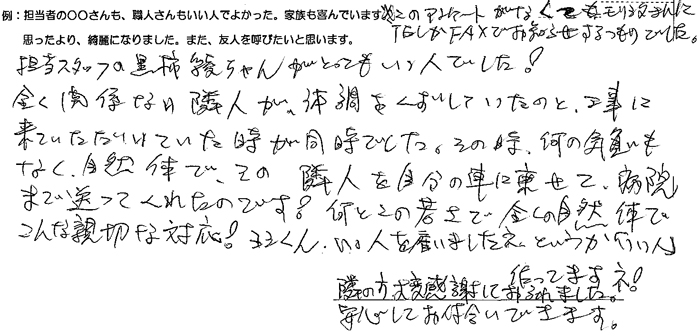 例：担当者の○○さんも、職人さんもいい人でよかった。家族も喜んでいます。
思ったより、綺麗になりました。また、友人を呼びたいと思います。
※このアンケートがなくてもモリタさんに
TELかFAXでお知らせするつもりでした。
担当スタッフの黒柿 ちゃんがとってもいい人でした！
全く関係ない隣人が、体調をくずしていたのと、工事に
来ていただいていた時が同時でした。その時、何の気負いも
なく、自然体で、その隣人を自分の車に乗せて、病院
まで送ってくれたのです！何とこの若さで全くの自然体で
こんな親切な対応！ くん、いい人を雇いましたネ、というか「いい人」
作ってますネ！
隣の方大変感謝しておられました。
安心してお付合いできます。